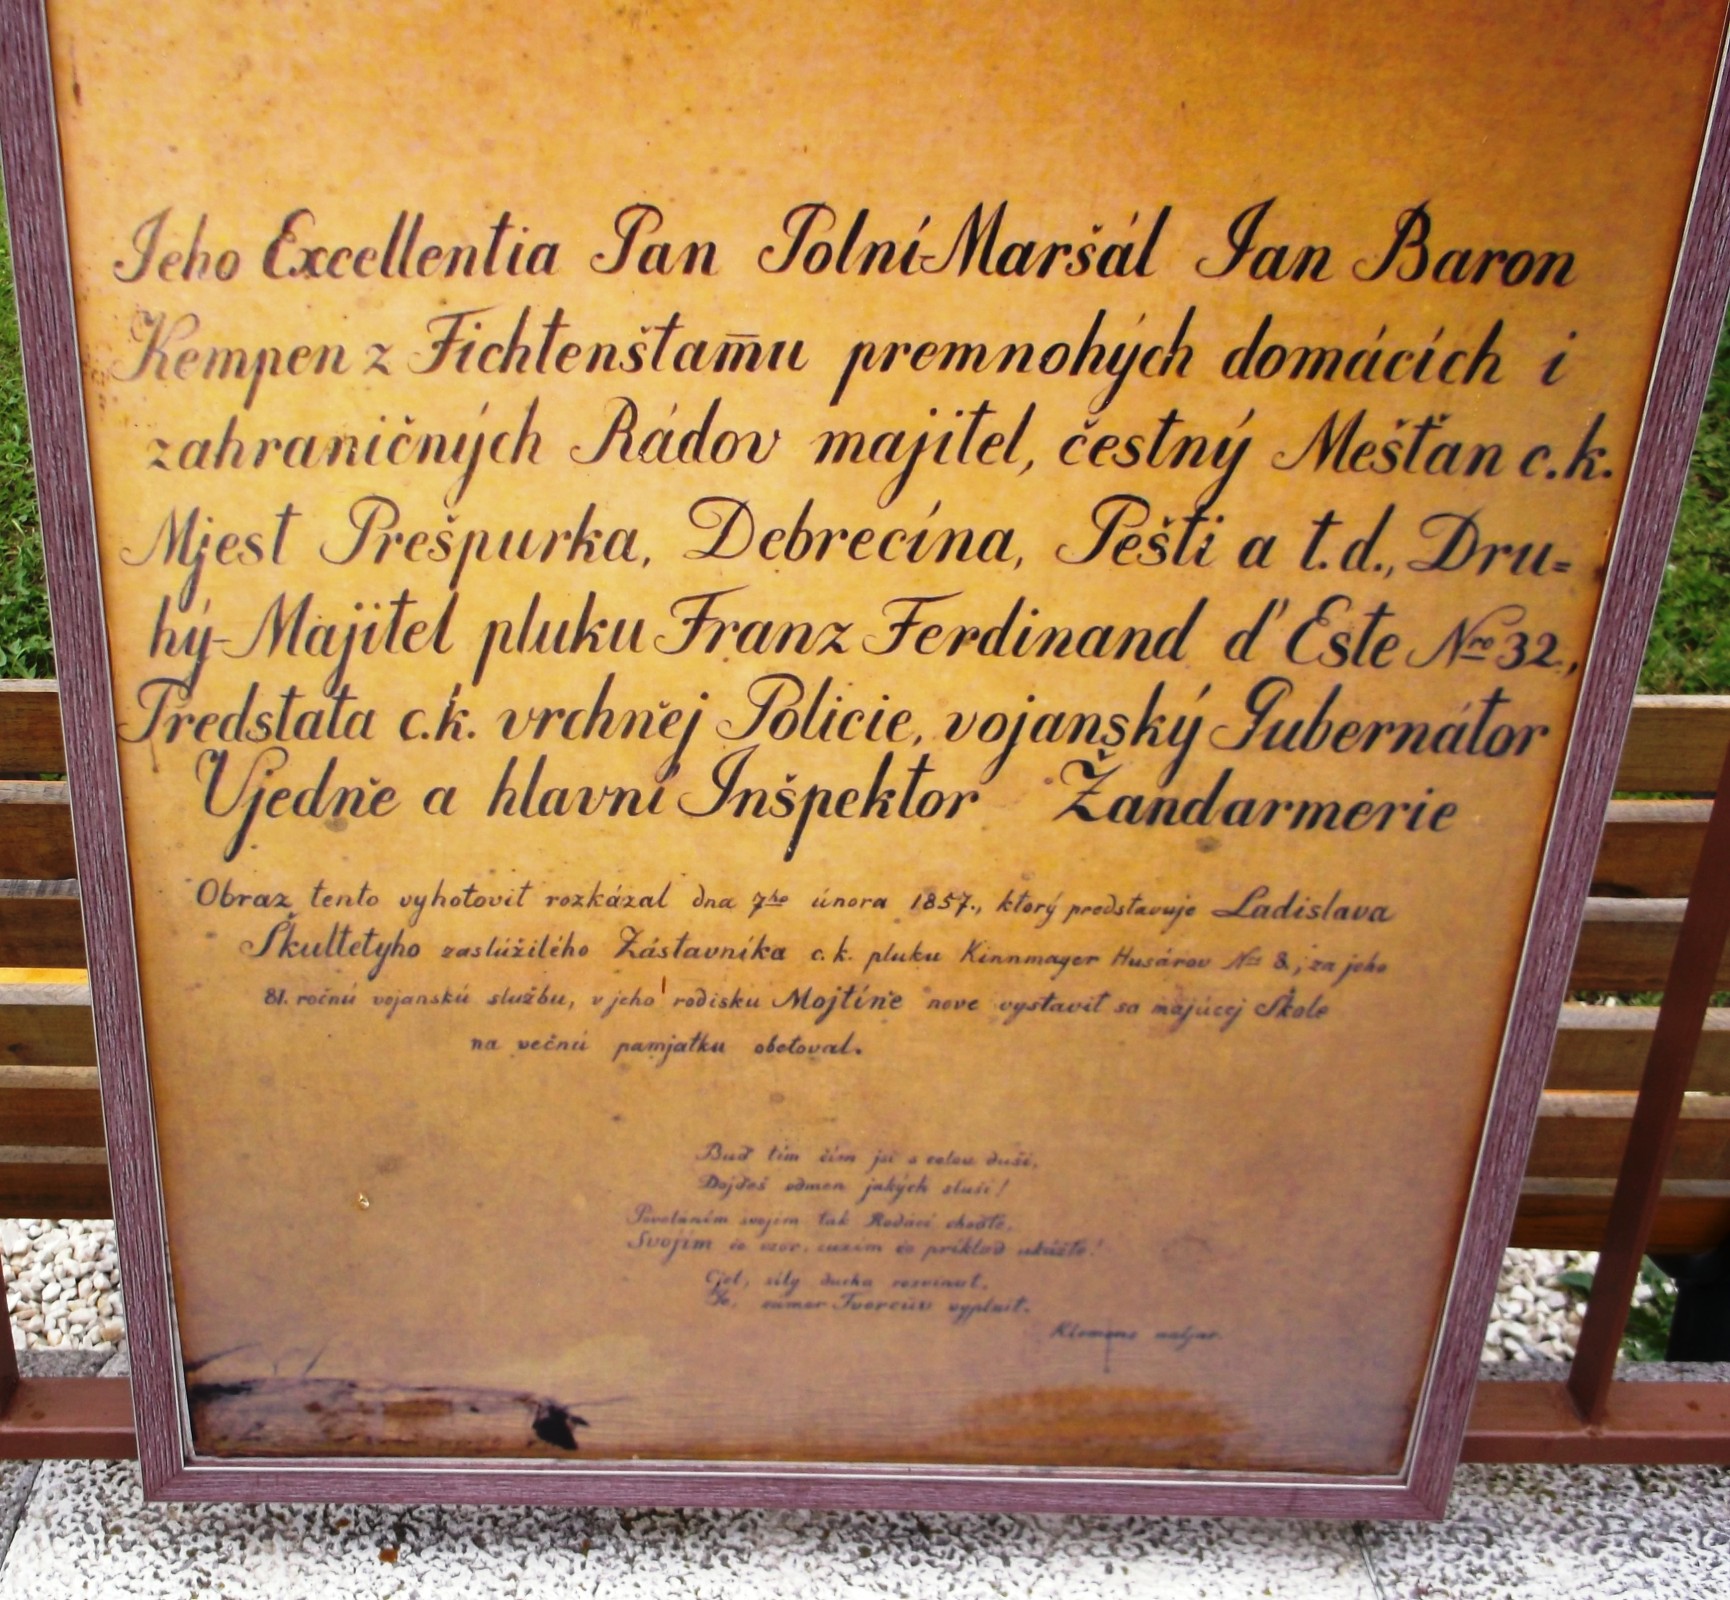 Jeho Excellentia Pan Polní-Maršál Jan Baron
Kempen z Fichtenštam̅u premnohých domácích i
zahraničných Rádov majitel, čestný Mešťan c.k.
Mjest Prešpurka, Debrecína, Pešti a t.d., Dru=
hý-Majitel pluku Franz Ferdinand d'Este Nro 32,
Predstata c.k. vrchněj Policie, vojanský Gubernátor
Vjedně a hlavní Inšpektor Žandarmerie
Obraz tento vyhotovit rozkázal dna 7ho února 1857., ktorý predstavuje Ladislava
Škultetyho zaslúžilého Zástavníka c.k. pluku Kinnmayer Husárov Nro 8, za jeho
81. ročnú vojanskú službu, v jeho rodisku Mojtíně nove vystavit sa majúcej Škole
na večnú pamjatku obetoval.
Buď tím čím jsi s celou duší,
Dojdeš odmen jakých sluší!
svojím tak Rodáci choďte,
Svojím čo vzor, cuzím čo príklad
Cjel, sily ducha rozvinut,
zámer Tvorcův vyplnit.